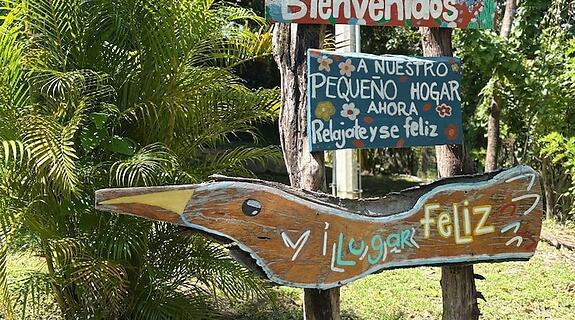 Bienvenidos
A NUESTRO
PEQUEÑO HOGAR
AHORA
Relajate y se feliz
Mi LLugar Feliz